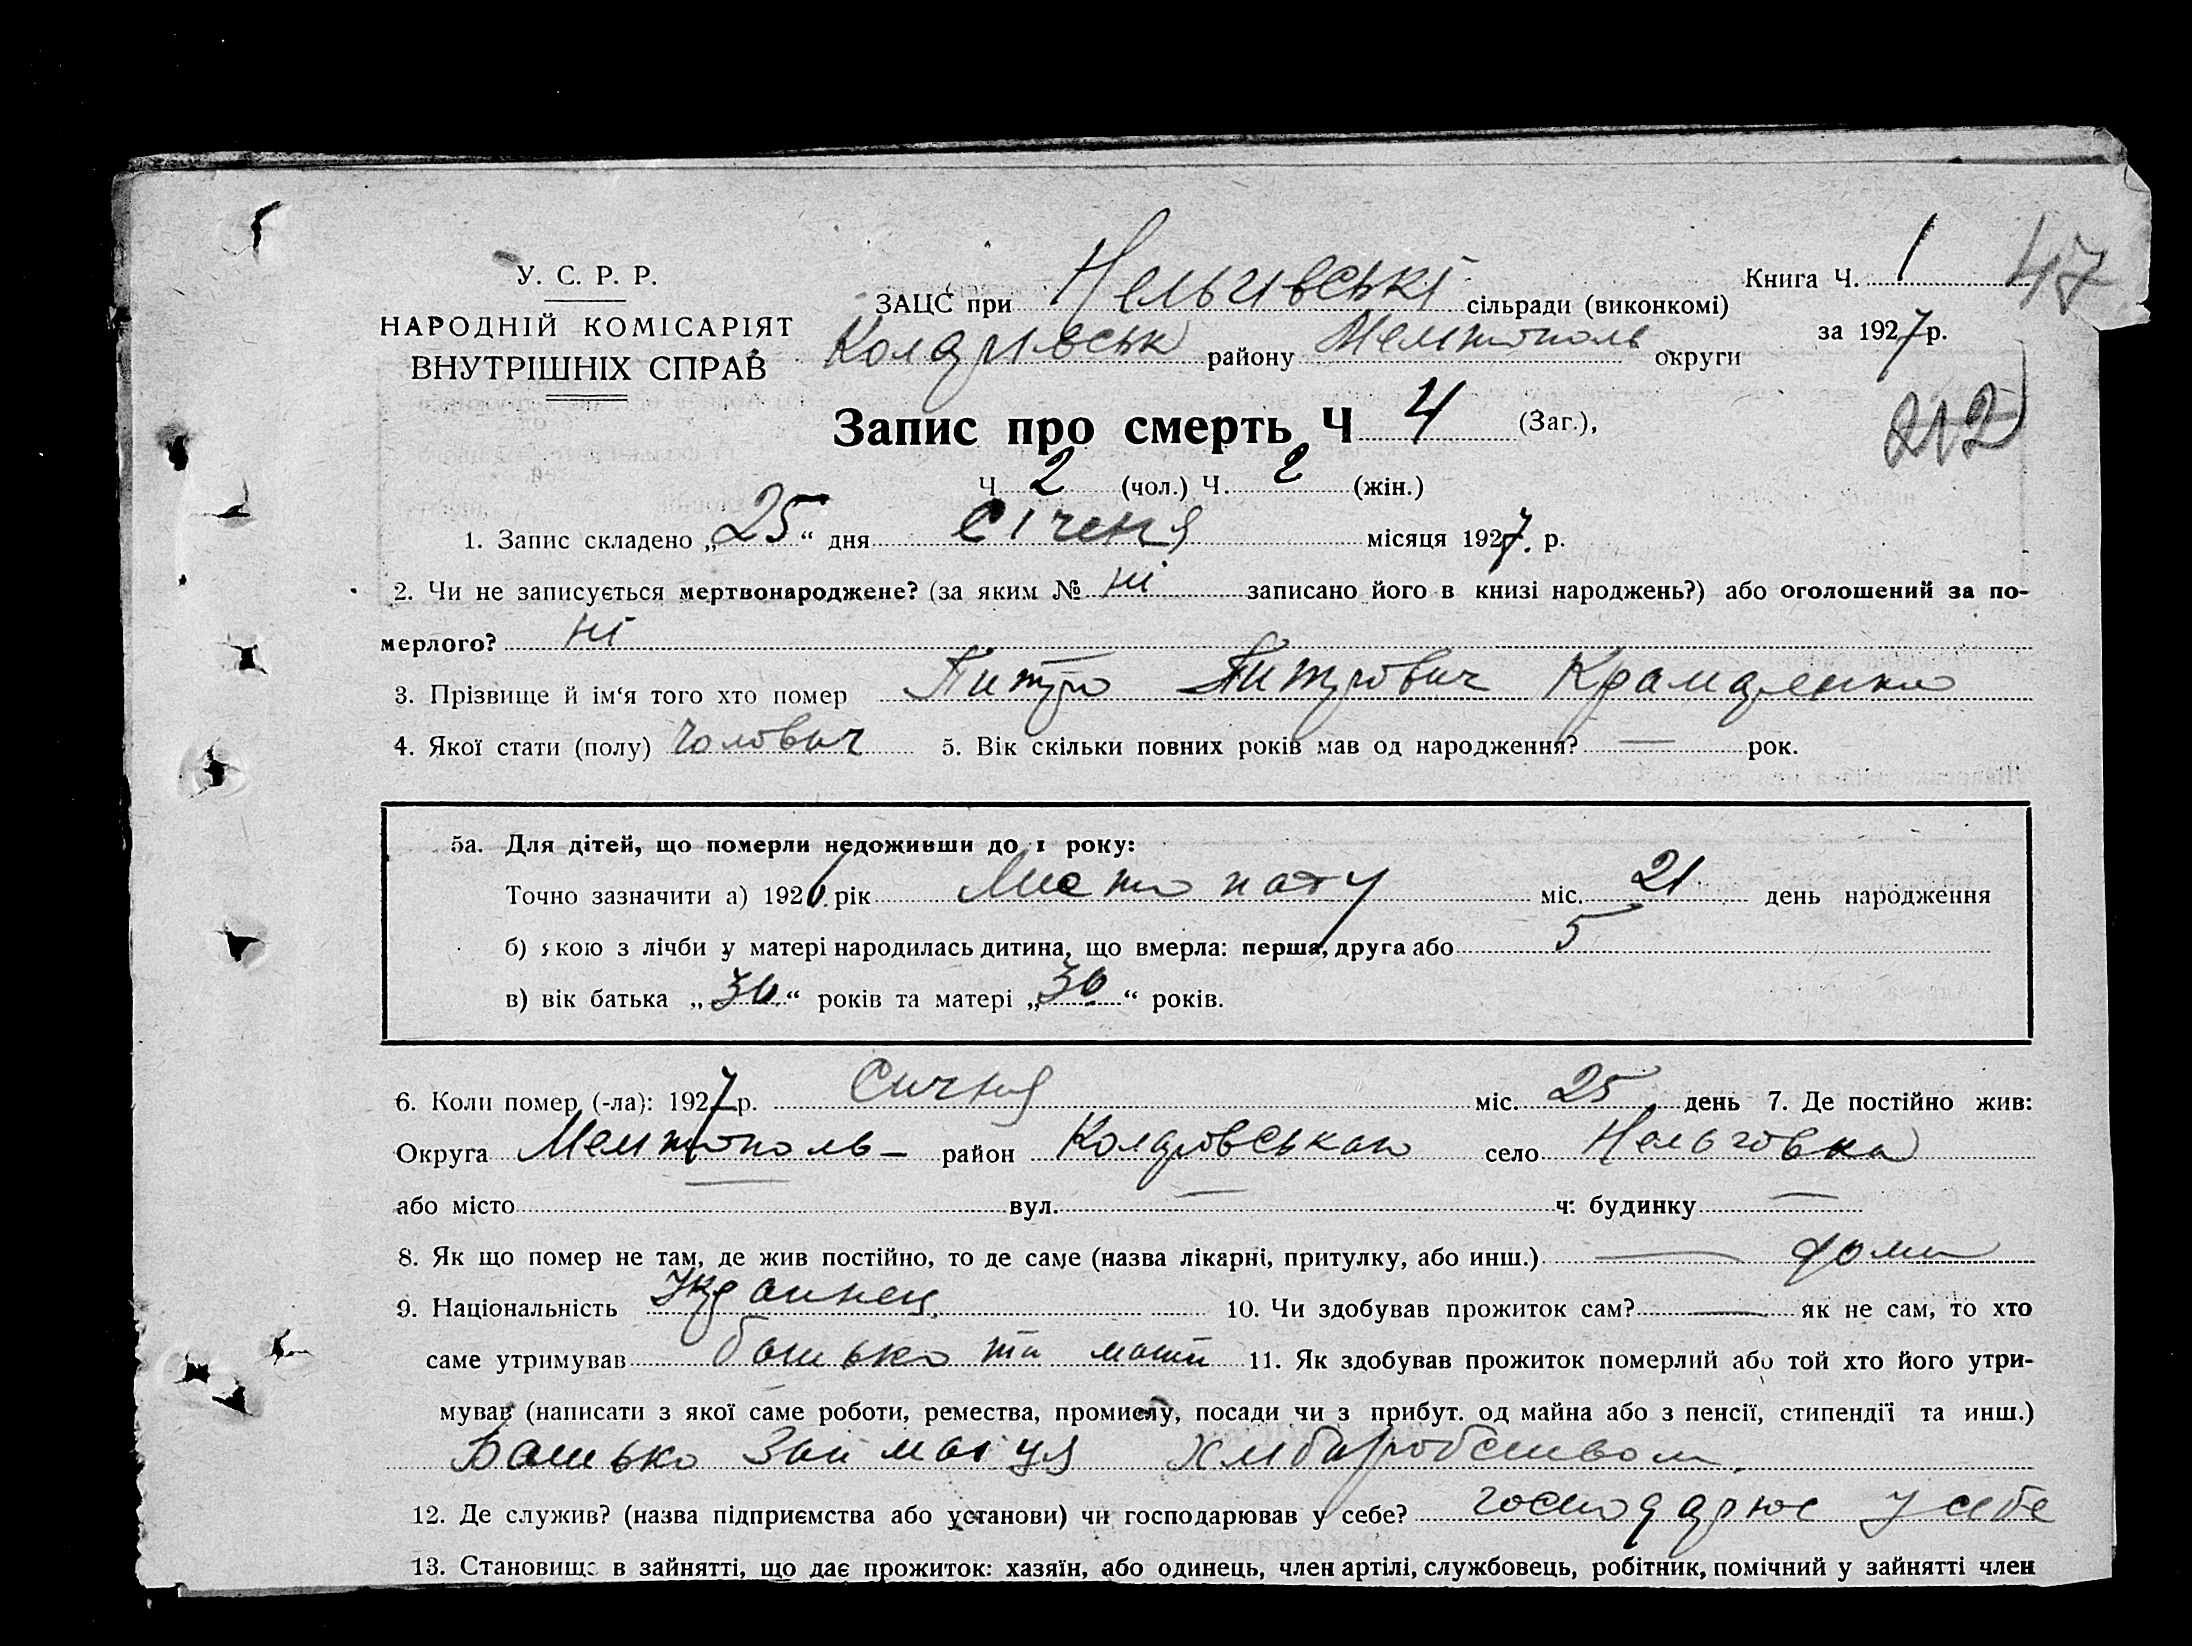 У. С. Р. Р.
НАРОДНІЙ КОМІСАРІЯТ
ВНУТРІШНІХ СПРАВ
ЗАЦС при Нельгивські сільради (виконкомі)
району Мелитополь округи
Книга Ч. 1
47
за 1927 р.
212
Запис про смерть Ч 4 (Заг.),
Ч 2 (чол.) Ч. 2 (жін.)
1. Запис складено „25“ дня Січеня місяця 1927. р.
2. Чи не записується мертвонароджене? (за яким № ні записано його в книзі народжень?) або оголошений за по-
мерлого? ні
3. Прізвище й ім‘я того хто помер Питро Питрович Крамаренко
4. Якої стати (полу) Чолович 5. Вік скільки повних років мав од народження? — рок.
5а. Для дітей, що померли недоживши до 1 року:
Точно зазначити а) 1926. рік Листопаду міс. 21 день народження
б) якою з лічби у матері народилась дитина, що вмерла: перша, друга або 5
в) вік батька „30“ років та матері „30“ років.
6. Коли помер (-ла): 1927 р. Сичня міс. 25 день 7. Де постійно жив:
Округа Мелитополь — район село Нельговка
або місто — вул. — ч: будинку —
8. Як що помер не там, де жив постійно, то де саме (назва лікарні, притулку, або инш.) — доми
9. Національність Украинец. 10. Чи здобував прожиток сам? — як не сам, то хто
саме утримував батько та мати 11. Як здобував прожиток померлий або той хто його утри-
мував (написати з якої саме роботи, ремества, промислу, посади чи з прибут. од майна або з пенсії, стипендії та инш.)
Батько займаїця хлибаробством.
12. Де служив? (назва підприємства або установи) чи господарював у себе? господарюе у себе
13. Становище в зайнятті, що дає прожиток: хазяїн, або одинець, член артілі, службовець, робітник, помічний у зайнятті член